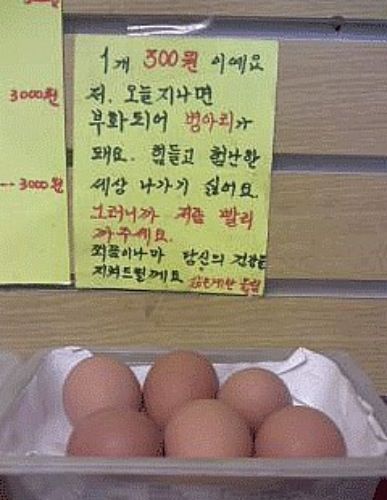 3000원
--3000원
1개 300원 이예요
저. 오늘지나면
부화되어 병아리가
돼요. 힘들고 험난한
세상 나가기 싫어요.
그러니까 저를 빨리
까주세요.
쬐끔이나마 당신의 건강을
지켜드릴께요